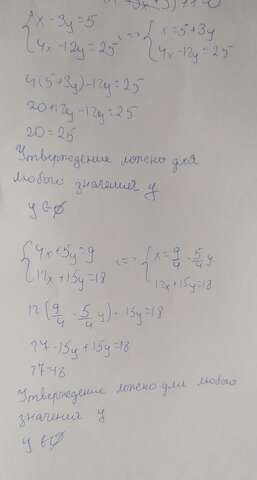 x - 3y = 5
4x - 12y = 25
<=>
x = 5 + 3y
4x - 12y = 25
4(5+3y) - 12y = 25
20 + 12y - 12y = 25
20 = 25
Утверждение ложно для
любого значений y
y ∈ ∅
4x + 5y = 9
12x + 15y = 18
<=>
x = 9/4 - 5/4 y
12x + 15y = 18
12(9/4 - 5/4 y) + 15y = 18
27 - 15y + 15y = 18
27 = 18
Утверждение ложно для любого
значения y
y ∈ ∅